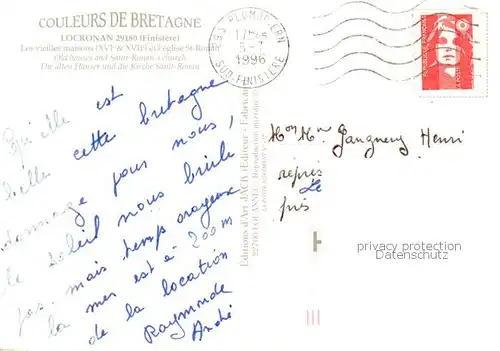 COULEURS DE BRETAGNE
LOCRONAN 29180 (Finistère)
Les vieilles maisons (XVIe & XVIIe) et l'église St-Ronan
Old houses and Saint-Ronan-s church
Die alten Häuser und die Kirche Sankt-Ronan
17H45
5-7
1996
SUD-FINISTERE
Qu'elle est
belle cette bretagne
dommage pour nous,
le soleil nous brûle
pas, mais temps orageux
la mer est à 200 m
de la location
Raymonde
André
Editions d'Art JACK (Editeur - Fabricant)
Henri
près
privacy protection
VSM Versand